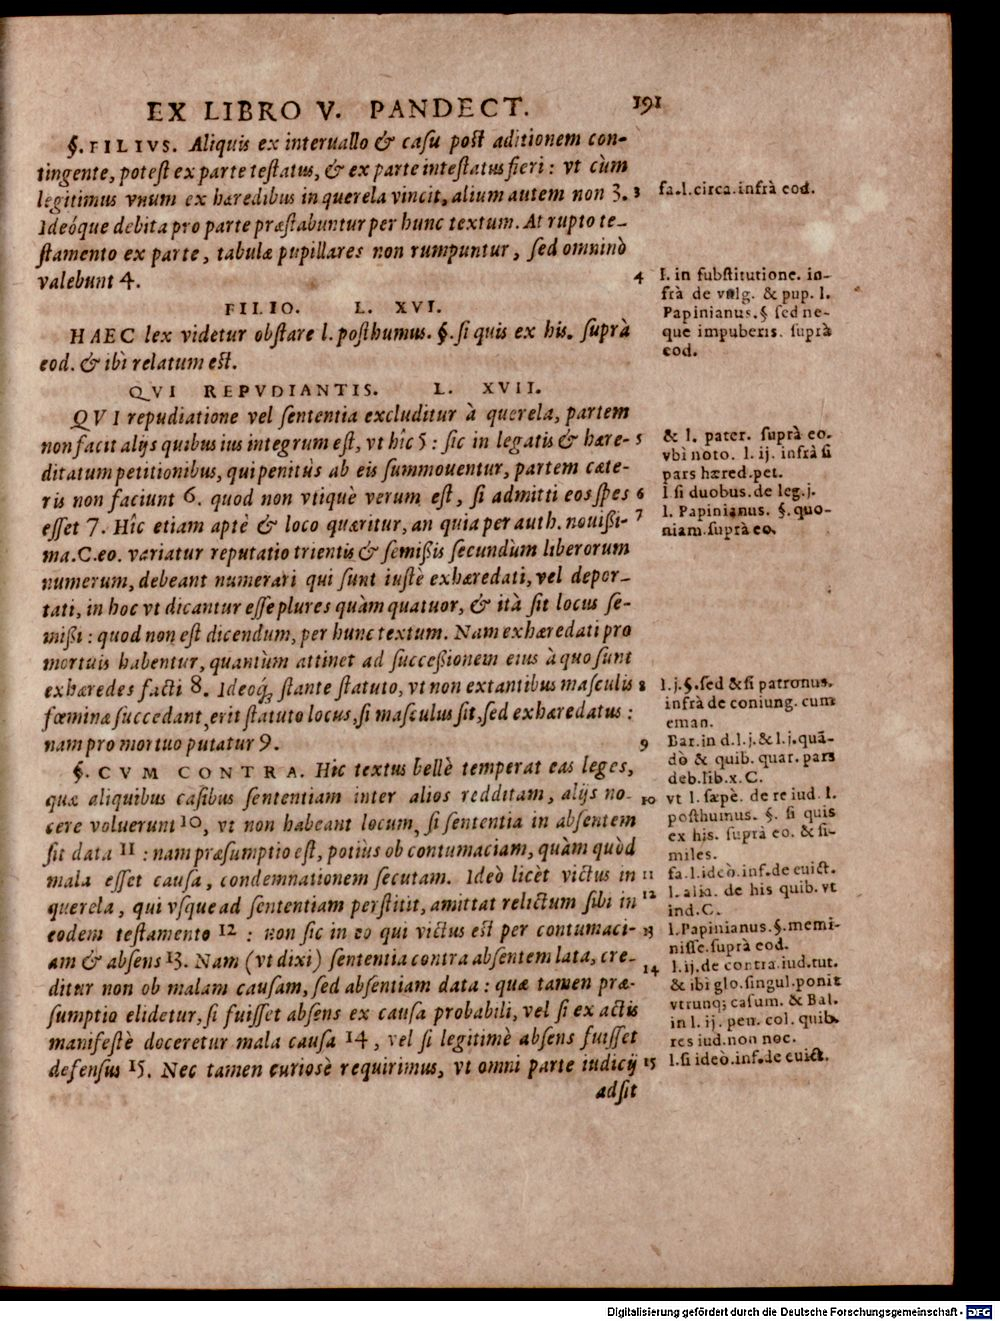 EX LIBRO V. PANDECT. 191
§. FILIVS. Aliquis ex interuallo & casu post aditionem con-
tingente, potest ex parte testatus, & ex parte intestatus fieri : vt cùm
legitimus vnum ex hæredibus in querela vincit, alium autem non 3.
Ideóque debita pro parte præstabuntur per hunc textum. At rupto te-
stamento ex parte, tabulæ pupillares non rumpuntur, sed omninò
valebunt 4.
FILIO. L. XVI.
HAEC lex videtur obstare l. posthumus. §. si quis ex his. suprà
eod. & ibì relatum est.
QVI REPVDIANTIS. L. XVII.
QVI repudiatione vel sententia excluditur à querela, partem
non facit alijs quibus ius integrum est, vt hîc 5 : sic in legatis & hære-
ditatum petitionibus, qui penitùs ab eis summouentur, partem cæte-
ris non faciunt 6. quod non vtiquè verum est, si admitti eos spes
esset 7. Hîc etiam aptè & loco quæritur, an quia per auth. nouißi-
ma. C. eo. variatur reputatio trientis & semißis secundùm liberorum
numerum, debeant numerari qui sunt iustè exhæredati, vel depor-
tati, in hoc vt dicantur esse plures quàm quatuor, & ità sit locus se-
mißi : quod non est dicendum, per hunc textum. Nam exhæredati pro
mortuis habentur, quantùm attinet ad succeßionem eius à quo sunt
exhæredes facti 8. Ideoq; stante statuto, vt non extantibus masculis
fœminæ succedant, erit statuto locus, si masculus sit, sed exhæredatus :
nam pro mortuo putatur 9.
§. CVM CONTRA. Hic textus bellè temperat eas leges,
quæ aliquibus casibus sententiam inter alios redditam, alijs no-
cere voluerunt 10, vt non habeant locum, si sententia in absentem
sit data 11 : nam præsumptio est, potiùs ob contumaciam, quàm quòd
mala esset causa, condemnationem secutam. Ideò licèt victus in
querela, qui vsque ad sententiam perstitit, amittat relictum sibi in
eodem testamento 12 : non sic in eo qui victus est per contumaci-
am & absens 13. Nam (vt dixi) sententia contra absentem lata, cre-
ditur non ob malam causam, sed absentiam data : quæ tamen præ-
sumptio elidetur, si fuisset absens ex causa probabili, vel si ex actis
manifestè doceretur mala causa 14, vel si legitimè absens fuisset
defensus 15. Nec tamen curiosè requirimus, vt omni parte iudicij
adsit
3 fa. l. circa. infrà eod.
4 l. in substitutione. in-
frà de vulg. & pup. l.
Papinianus. § sed ne-
que impuberis. suprà
eod.
5 & l. pater. suprà eo.
vbi noto. l. ij. infrà si
pars hæred. pet.
6 l si duobus. de leg. j.
7 l. Papinianus. §. quo-
niam. suprà eo.
8 l. j. §. sed & si patronus.
infrà de coniung. cum
eman.
9 Bar. in d. l. j. & l. j. quã-
dò & quib. quar. pars
deb. lib. x. C.
10 vt l. sæpè. de re iud. l.
posthumus. §. si quis
ex his. suprà eo. & si-
miles.
11 fa. l. ideò. inf. de euict.
12 l. alia. de his quib. vt
ind. C.
13 l. Papinianus. §. memi-
nisse. suprà eod.
14 l. ij. de contra. iud. tut.
& ibi glo. singul. ponit
vtrunq; casum. & Bal.
in l. ij. pen. col. quib.
res iud. non noc.
15 l. si ideò. inf. de euict.
Digitalisierung gefördert durch die Deutsche Forschungsgemeinschaft - DFG